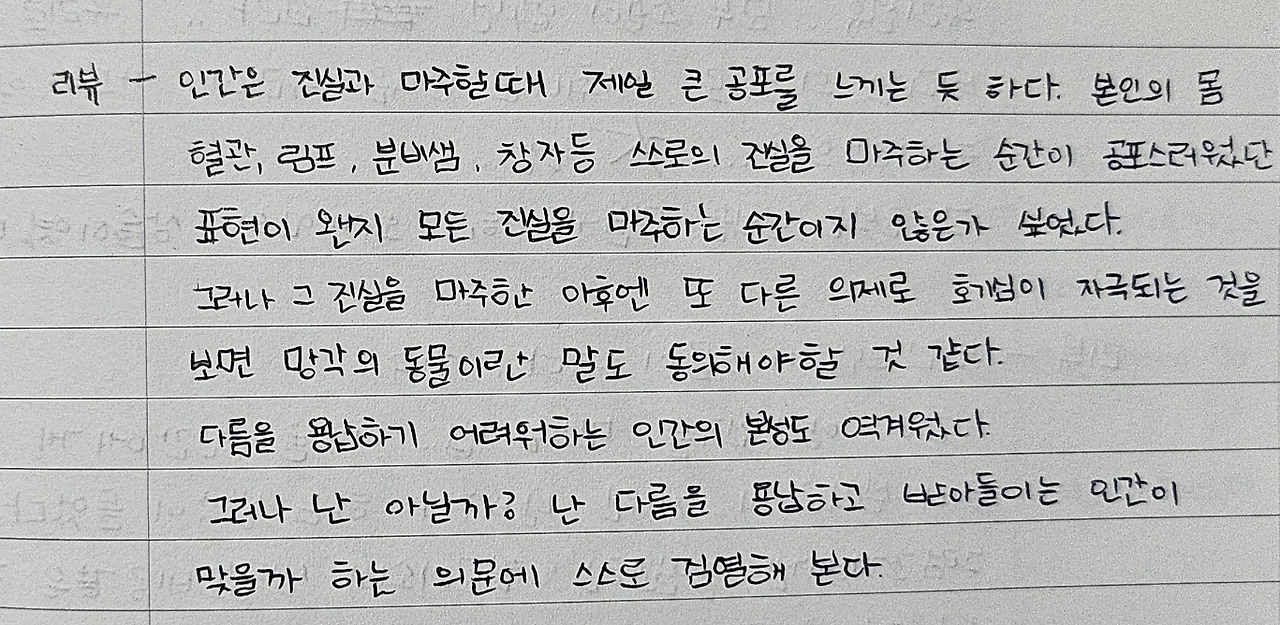 리뷰 - 인간은 진실과 마주할때 제일 큰 공포를 느끼는 듯 하다. 본인의 몸
혈관, 림프, 분비샘, 창자등 스스로의 진실을 마주하는 순간이 공포스러웠단
표현이 왠지 모든 진실을 마주하는 순간이지 않은가 싶었다.
그러나 그 진실을 마주한 이후엔 또 다른 의제로 호기심이 자극되는 것을
보면 망각의 동물이란 말도 동의해야할 것 같다.
다름을 용납하기 어려워하는 인간의 본성도 역겨웠다.
그러나 난 아닐까? 난 다름을 용납하고 받아들이는 인간이
맞을까 하는 의문에 스스로 검열해 본다.